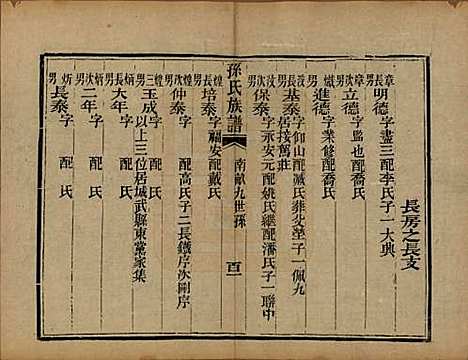 長房之長支
章長男 明德 字盡三 配李氏 子一 大興
章次男 立德 字監也 配喬氏
熾男 進德 字業修 配喬氏
汝長男 基泰 字仰山 配臧氏 葬父塋 子一 佩九 居接萬莊
汝次男 保泰 字承安 元配姚氏 繼配潘氏 子一 聯中
孫氏族譜 南畝九世孫 百二
煌長男 培泰 字福安 配戴氏
煌次男 仲泰 字 配高氏 子二 長鐵序 次剛序
煌三男 玉成 以上三位居城武縣東黨家集
炳長男 大年 字 配 氏
炳次男 二年 字 配 氏
炘男 長泰 字 配 氏